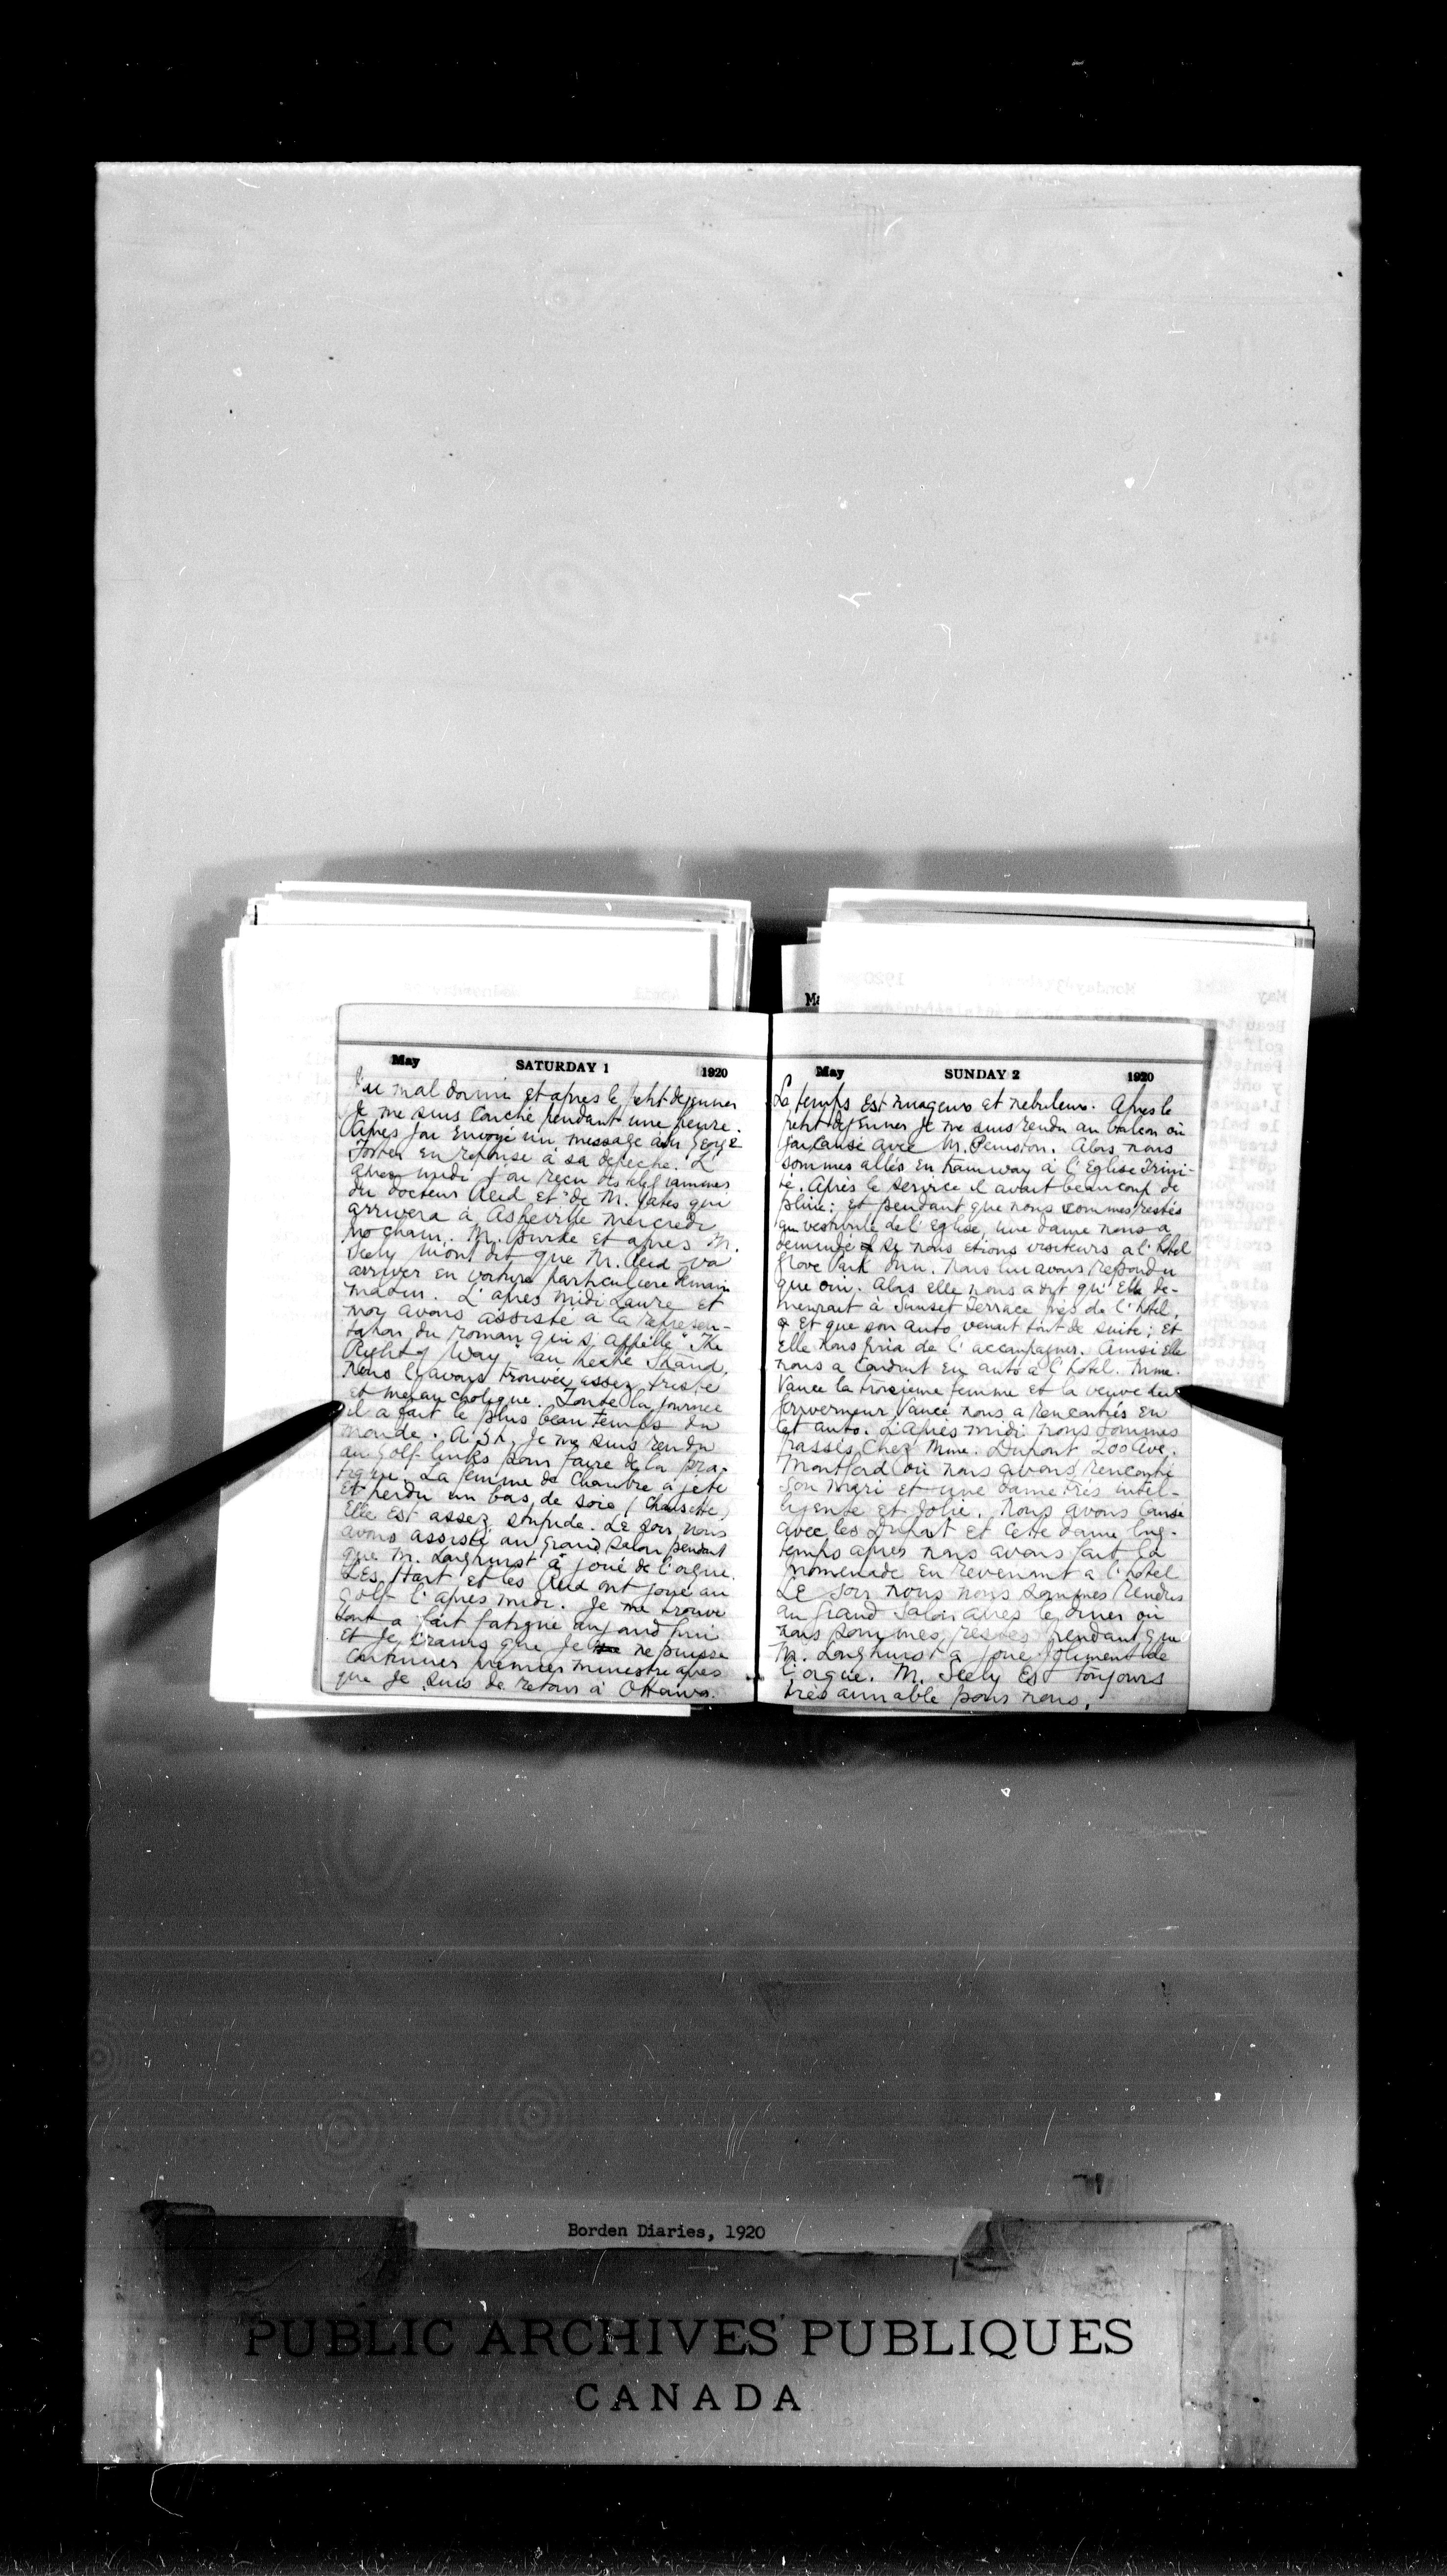 May SATURDAY 1 1920
J'ai mal dormi et après le petit dejeuner
Je me suis couché pendant une heure.
Après j'ai envoyé un message à Sir George
Foster en reponse à sa depeche. L'
apres midi j'ai reçu des telegrammes
du docteur Reid et de M. Yates qui
arrivera à Asheville mercredi
prochain. M. Burke et apres M.
Seely m'ont dit que M. Reid va
arriver en voiture particuliere demain
matin. L'apres midi Laure et
moy avons assiste a la represen-
tation du roman qui s'appelle "The
Right of Way" au theatre Strand.
Nous l'avons trouvée assez triste
et melancholique. Toute la journée
il a fait le plus beau temps du
monde. A 3h. je me suis rendu
au Golf links pour faire de la pra-
tique. La femme de Chambre a jeté
et perdu un bas de soie (chaussette)
Elle est assez stupide. Le soir nous
avons assisté au grand salon pendant
que M. Longhurst a joué de l'orgue.
Les Hart et les Reid ont joué au
golf l'apres midi. Je me trouve
tout a fait fatigué aujourd'hui
et je crains que je ne puisse
continuer premier ministre apres
que je suis de retour à Ottawa.
Ma
May SUNDAY 2 1920
Le temps est nuageux et nebuleux. Apres le
petit dejeuner je me suis rendu au balcon où
j'ai causé avec M. Peniston. Alors nous
sommes allés en tramway à l'Eglise Trini-
té. Après le service il avait beaucoup de
pluie; et pendant que nous sommes restés
au vestibule de l'Eglise, une dame nous a
demandé si nous etions visiteurs a l'hotel
Grove Park Inn. Nous lui avons repondu
que oui. Alors elle nous a dit qu'elle de-
meurait à Sunset Terrace près de l'hotel,
et que son auto venait tout de suite; et
elle nous pria de l'accompagner. Ainsi elle
nous a conduit en auto à l'hotel. Mme.
Vance la troisieme femme et la veuve du
Gouverneur Vance nous a rencontrés en
cet auto. L'après midi nous sommes
passés chez Mme. Dupont 200 Ave.
Montford où nous avons rencontré
son mari et une dame très intel-
ligente et jolie. Nous avons causé
avec les Dupont et cette dame long-
temps apres nous avons fait la
promenade en revenant a l'hotel
Le soir nous nous sommes rendus
au grand salon apres le diner où
nous sommes restés pendant que
M. Longhurst a joué joliment de
l'orgue. M. Seely est toujours
très aimable pour nous.
Borden Diaries, 1920
PUBLIC ARCHIVES PUBLIQUES
CANADA